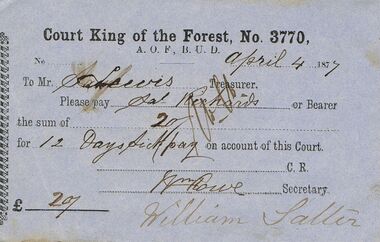 Court King of the Forest, No. 3770,
A. O. F., B. U. D.
No April 4 1877
To Mr. Lewis Treasurer.
Please pay Richards or Bearer
the sum of 20/
for 12 Days sick pay on account of this Court.
C. R.
Wm Rowe Secretary.
£ 20/
William Salter